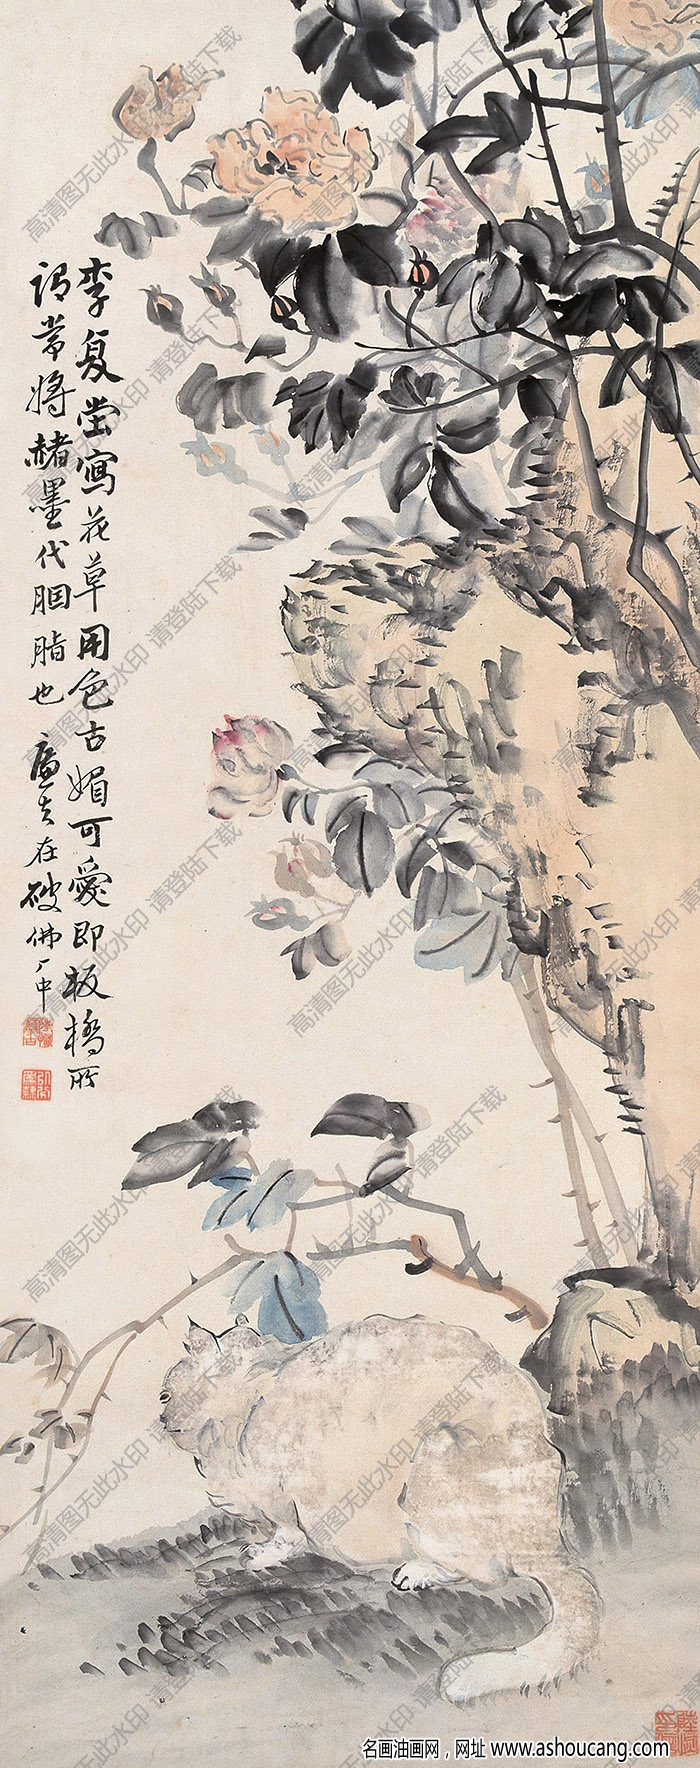 李复堂寫花草用色古媚可愛即板橋所
謂常将赭墨代胭脂也 廉夫在破佛厂中
高清图无此水印 请登陆下载
名画油画网，网址 www.ashoucang.com